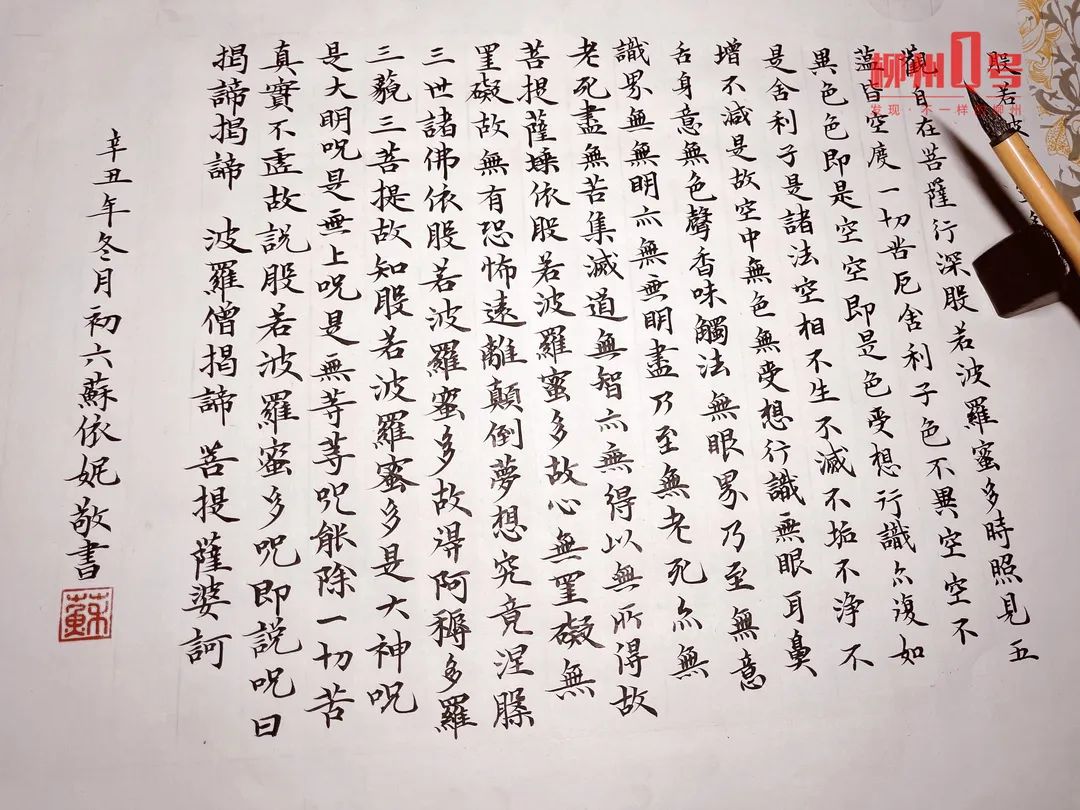 柳州1号
发现·不一样的柳州
般若波
觀自在菩薩行深般若波羅蜜多時照見五
蘊皆空度一切苦厄舍利子色不異空空不
異色色即是空空即是色受想行識亦復如
是舍利子是諸法空相不生不滅不垢不浄不
增不減是故空中無色無受想行識無眼耳鼻
舌身意無色聲香味觸法無眼界乃至無意
識界無無明亦無無明盡乃至無老死亦無
老死盡無苦集滅道無智亦無得以無所得故
菩提薩埵依般若波羅蜜多故心無罣礙無
罣礙故無有恐怖遠離顛倒夢想究竟涅槃
三世諸佛依般若波羅蜜多故得阿耨多羅
三藐三菩提故知般若波羅蜜多是大神咒
是大明咒是無上咒是無等等咒能除一切苦
真實不虛故説般若波羅蜜多咒即説咒曰
揭諦揭諦 波羅僧揭諦 菩提薩婆訶
辛丑年冬月初六蘇依妮敬書
蘇